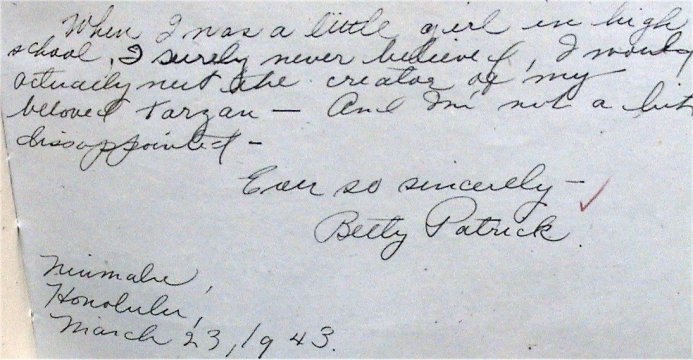 When I was a little girl in high
school, I surely never believed, I would
actually meet the creator of my
beloved Tarzan — And I'm not a bit
dissappointed —
Ever so sincerely —
Betty Patrick.
Niumalu,
Honolulu,
March 23, 1943.